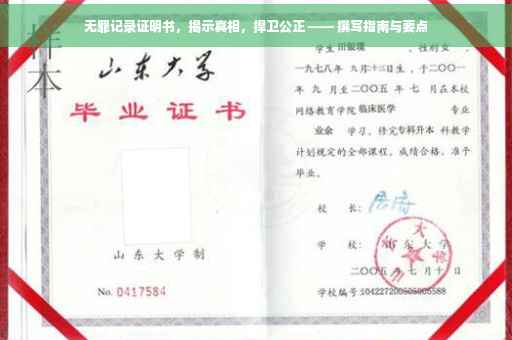 无罪记录证明书，揭示真相，捍卫公正 —— 撰写指南与要点
样本
山东大学
毕业证书
山东大学制
No. 0417584
学生 田银環 ，性别女 ，
一九七八年 九月十三日生，于二〇〇一
年 九 月至二〇〇五 年 七 月在本校
网络教育学院临床医学 专业
业余 学习，修完专科升本 科教学
计划规定的全部课程，成绩合格，准予
毕业。
校 长：
学 校： 山东大学
二〇〇五 年 七 月 十 日
学校编号:104227200505005588